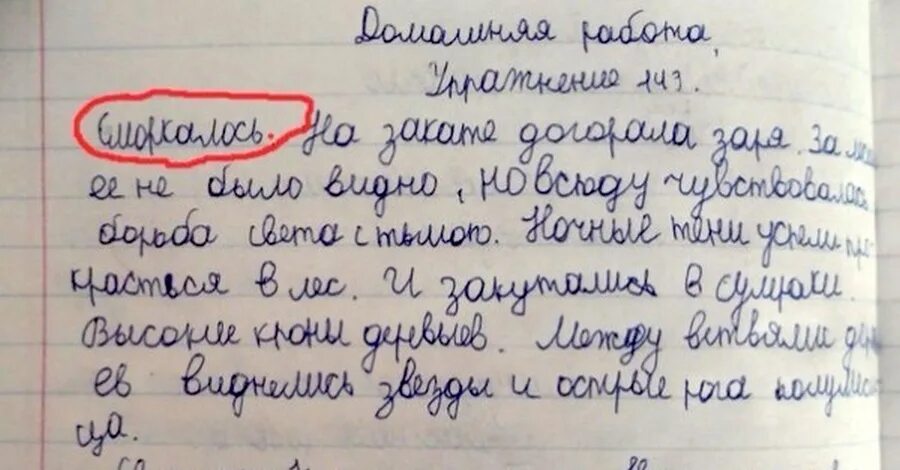 Домашняя работа
Упражнение 143.
Сморкалось. На закате догорала заря. За
ее не было видно, но всюду чувствовалась
борьба света с тьмою. Ночные тени успели про
красться в лес. И закутались в сумраки.
Высокие кроны деревьев. Между ветвями дерев
ев виднелись звезды и острые рога полумеся
ца.